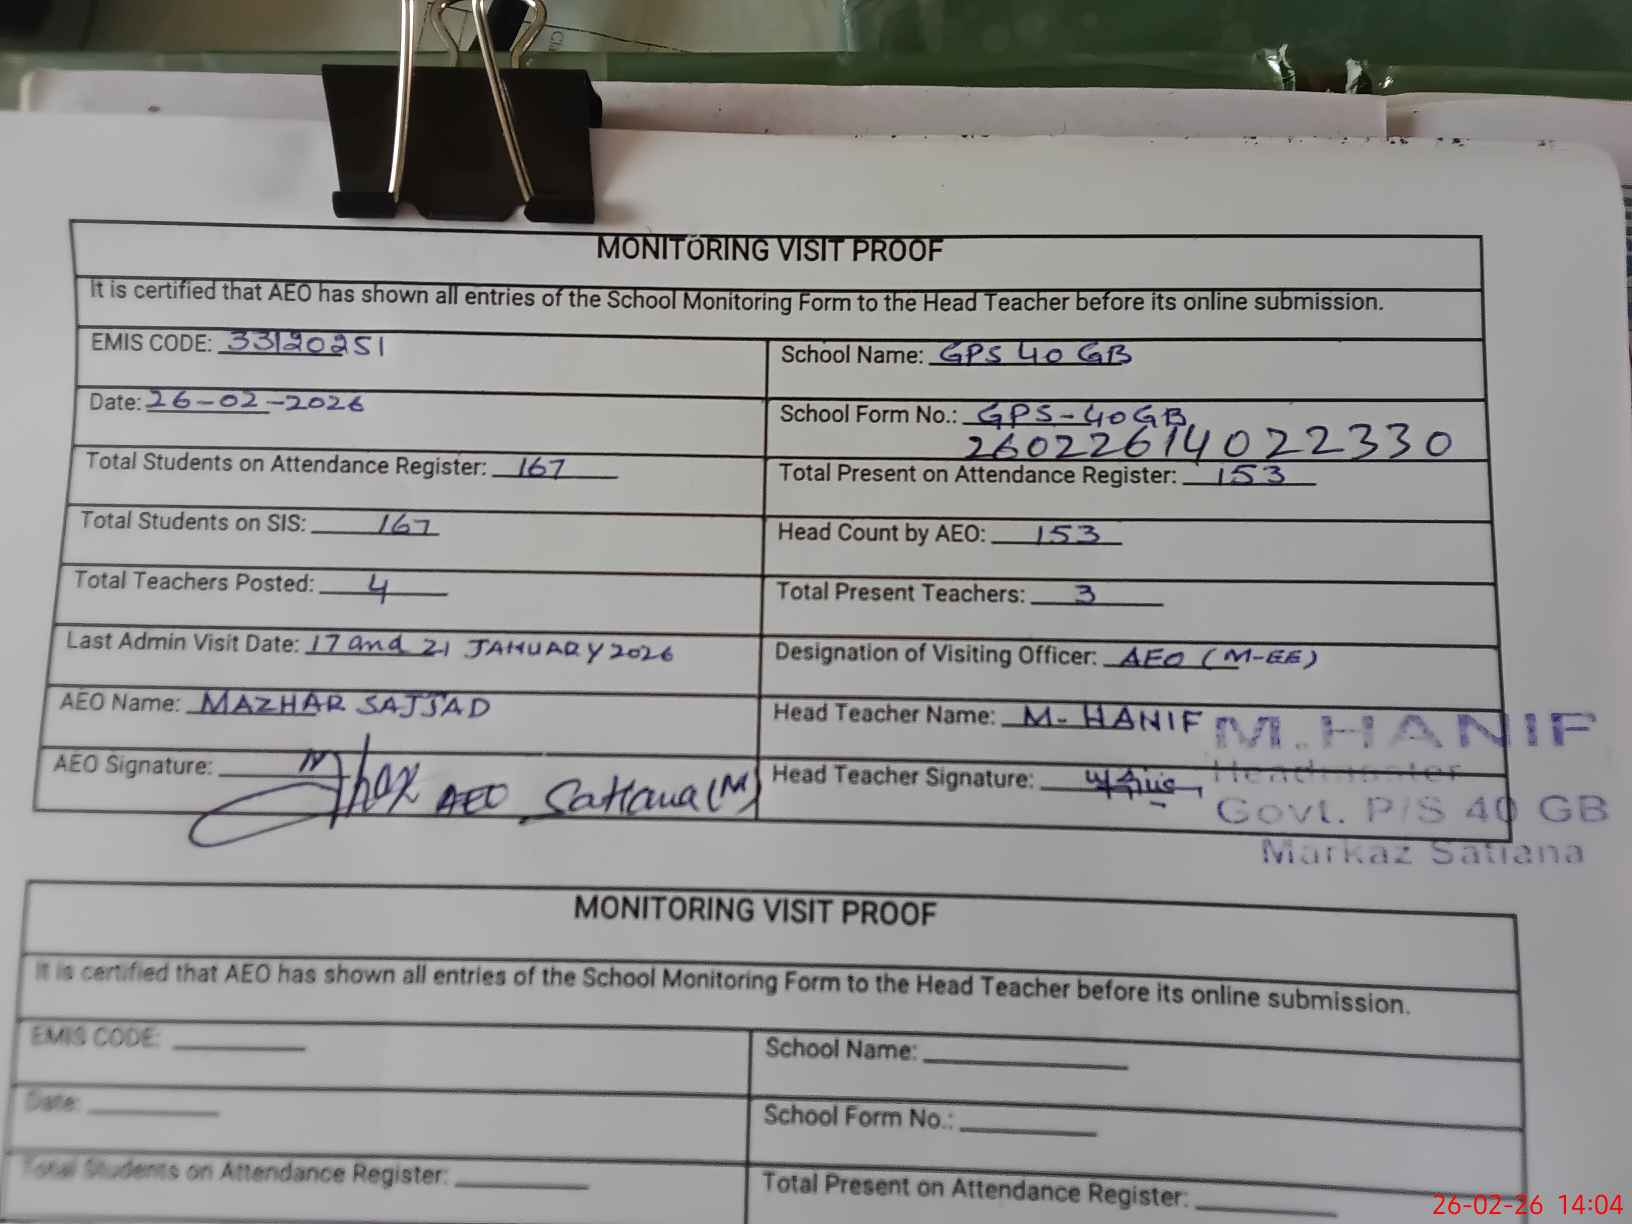 MONITORING VISIT PROOF
It is certified that AEO has shown all entries of the School Monitoring Form to the Head Teacher before its online submission.
EMIS CODE: 33120251
School Name: GPS 40 GB
Date: 26-02-2026
School Form No.: GPS-40GB
26022614022330
Total Students on Attendance Register: 167
Total Present on Attendance Register: 153
Total Students on SIS: 167
Head Count by AEO: 153
Total Teachers Posted: 4
Total Present Teachers: 3
Last Admin Visit Date: 17 and 21 JANUARY 2026
Designation of Visiting Officer: AEO (M-EE)
AEO Name: MAZHAR SAJJAD
Head Teacher Name: M- HANIF
M.HANIF
AEO Signature: AEO Satiana (M)
Head Teacher Signature:
Headmaster
Govt. P/S 40 GB
Markaz Satiana
MONITORING VISIT PROOF
It is certified that AEO has shown all entries of the School Monitoring Form to the Head Teacher before its online submission.
EMIS CODE:
School Name:
Date:
School Form No.:
Total Students on Attendance Register:
Total Present on Attendance Register:
26-02-26 14:04